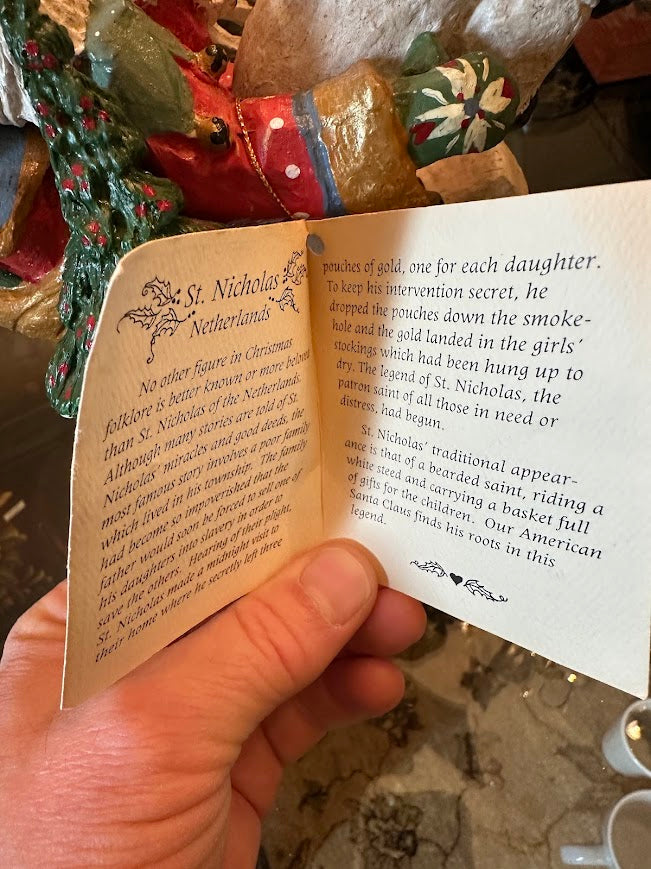 St. Nicholas
Netherlands
No other figure in Christmas
folklore is better known or more beloved
than St. Nicholas of the Netherlands.
Although many stories are told of St.
Nicholas' miracles and good deeds, the
most famous story involves a poor family
which lived in his township. The family
had become so impoverished that the
father would soon be forced to sell one of
his daughters into slavery in order to
save the others. Hearing of their plight,
St. Nicholas made a midnight visit to
their home where he secretly left three
pouches of gold, one for each daughter.
To keep his intervention secret, he
dropped the pouches down the smoke-
hole and the gold landed in the girls'
stockings which had been hung up to
dry. The legend of St. Nicholas, the
patron saint of all those in need or
distress, had begun.
St. Nicholas' traditional appear-
ance is that of a bearded saint, riding a
white steed and carrying a basket full
of gifts for the children. Our American
Santa Claus finds his roots in this
legend.